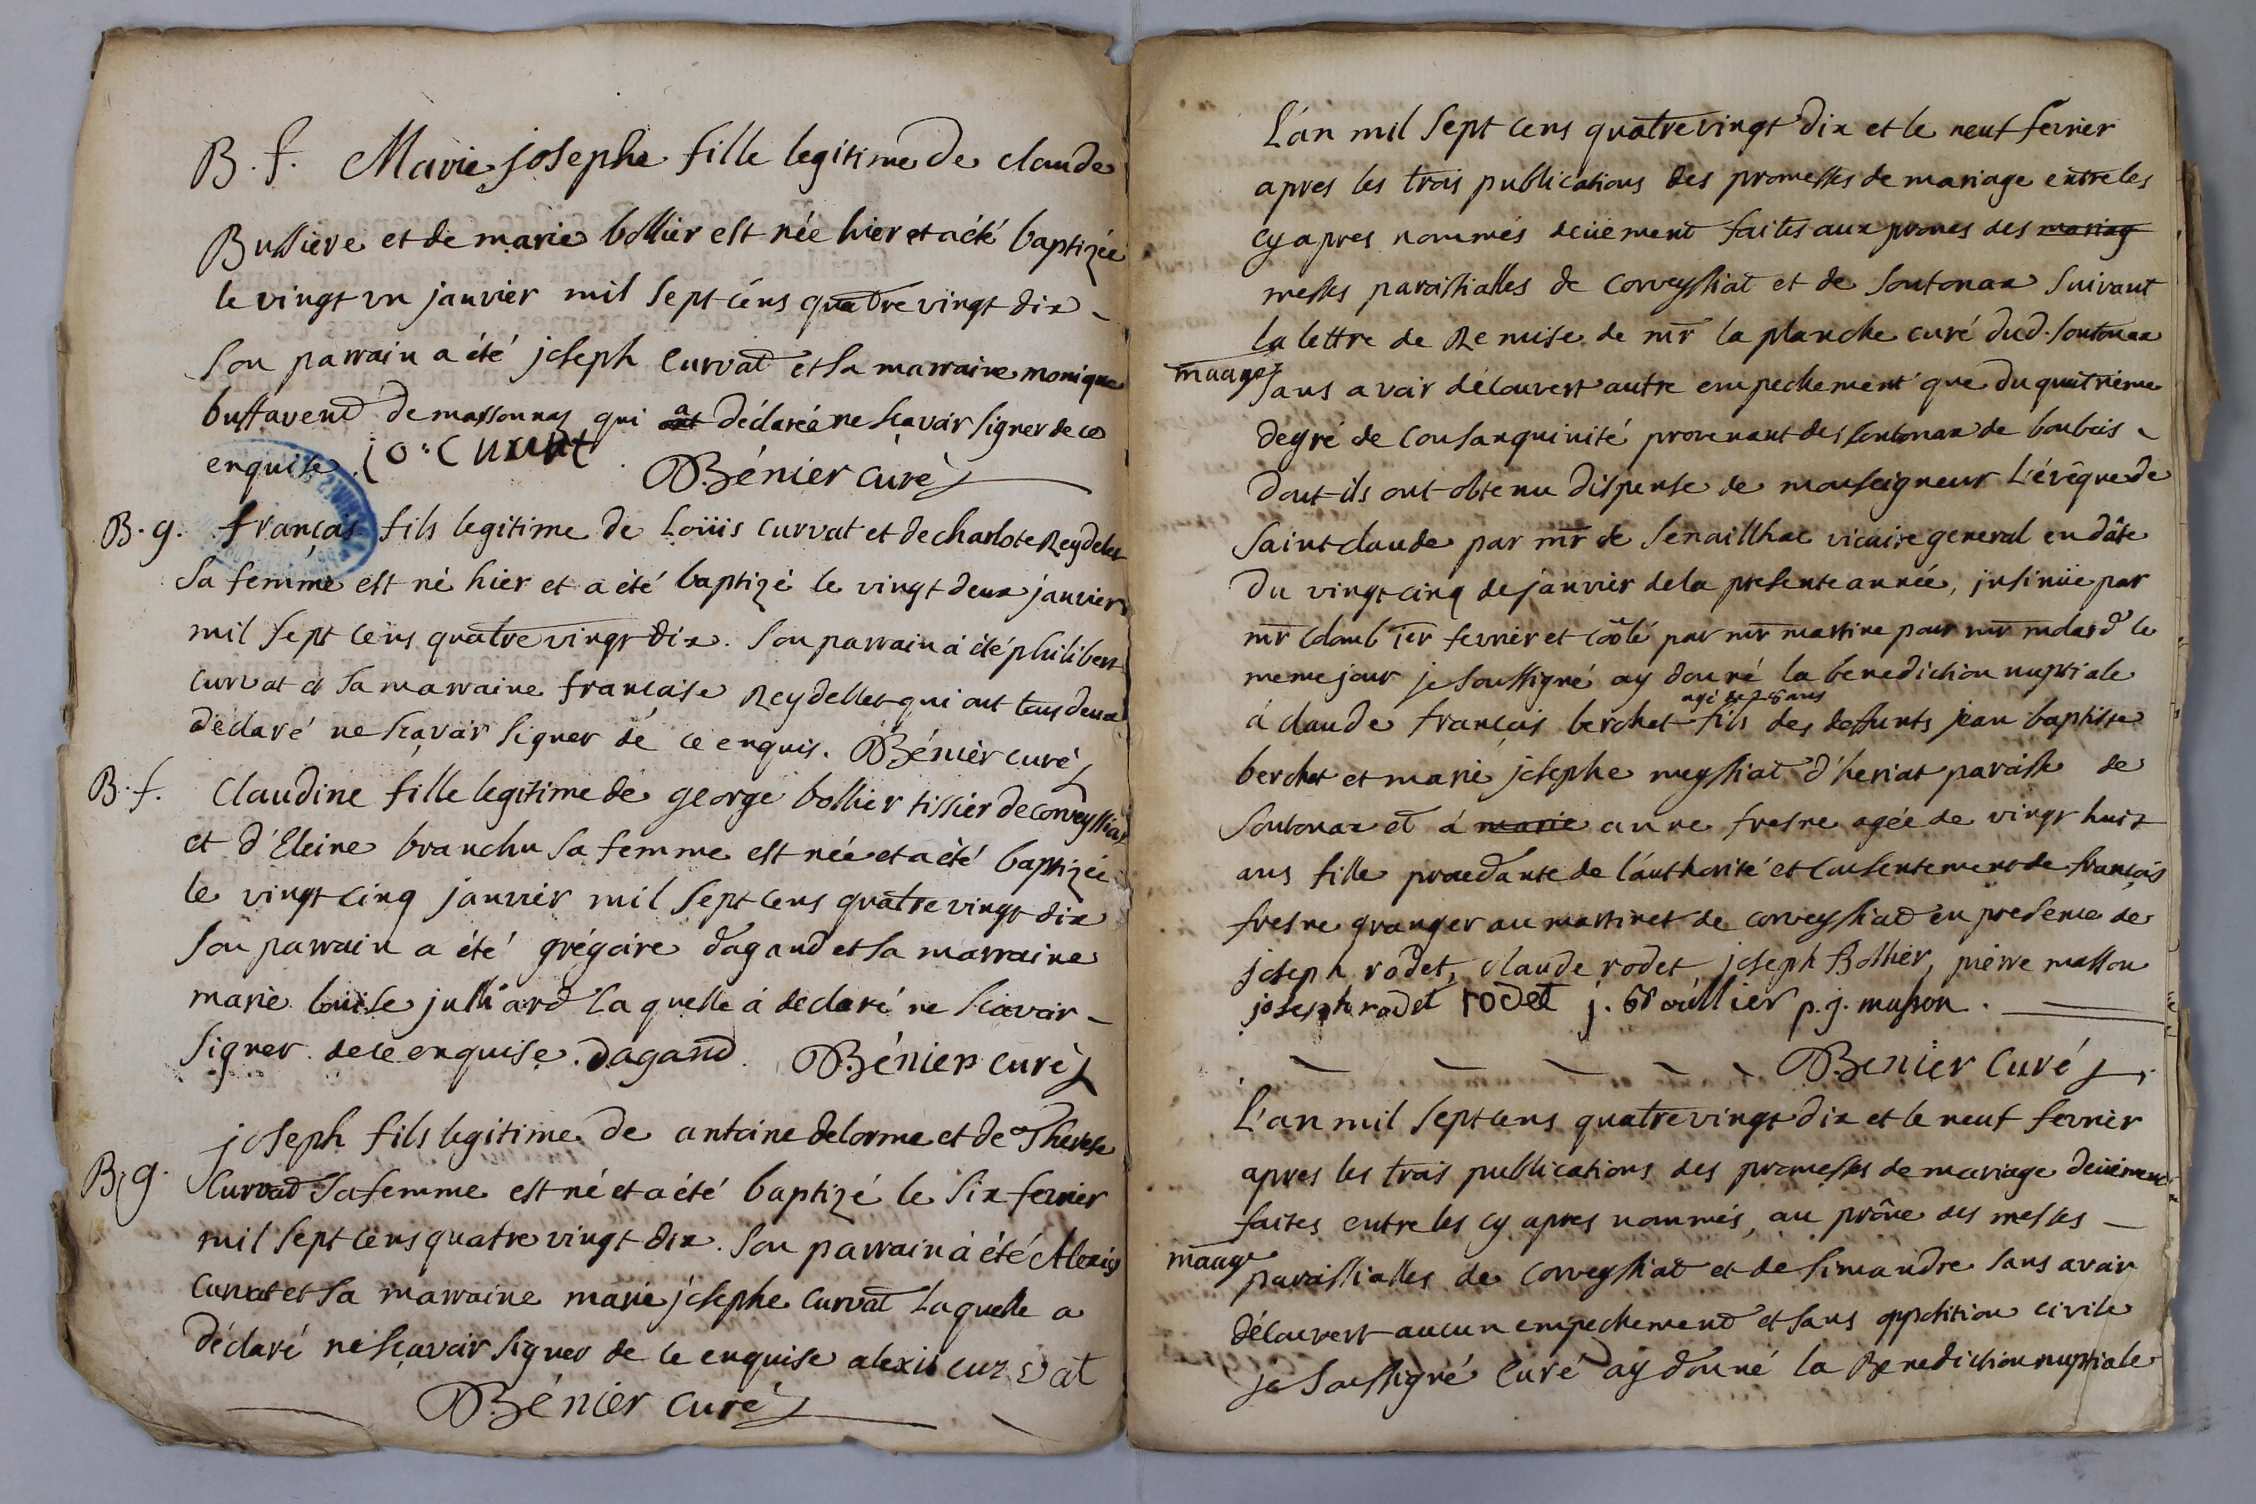 B. f. Marie josephe fille legitime de claude
Bussiere et de marie bollier est née hier et a été baptizée
le vingt un janvier mil sept cens quatre vingt dix -
son parrain a été joseph Curvat et sa marraine monique
buffavend de massonnas qui a déclarée ne scavoir signer de ce
enquise. jo: Curvat Bénier curé
B. g. françois fils legitime de Loüis curvat et de charlote Reydelet
sa femme est né hier et a été baptizé le vingt deux janvier
mil sept cens quatre vingt dix. son parrain a été philibert
curvat et sa marraine francaise Reydellet qui ont tous deux
déclaré ne scavoir signer de ce enquis. Bénier curé
B. f. Claudine fille legitime de george bollier tissier de corveyssiat
et d'Eleine branchu sa femme est née et a été baptizée
le vingt cinq janvier mil sept cens quatre vingt dix
son parrain a été grégoire dagand et sa marraine
marie louise julliard laquelle a declaré ne scavoir -
signer de ce enquise. Dagand Bénier curé
joseph fils legitime de antoine delorme et de Therese
B. g. Curvat sa femme est né et a été baptizé le six fevrier
mil sept cens quatre vingt dix. son parrain a été Alexis
Curvat et sa marraine marie josephe curvat laquelle a
déclaré ne scavoir signer de ce enquise alexis curvat
Bénier curé
L'an mil sept cens quatre vingt dix et le neuf fevrier
apres les trois publications des promesses de mariage entre les
cy apres nommés deüement faites aux prones des mariag
messes paroissialles de corveyssiat et de soutonax suivant
la lettre de Remise de mr la planche curé dud. soutonax
maage sans avoir découvert autre empechement que du quatrieme
degré de consanguinité provenant des soutonax de boubois -
dont ils ont obtenu dispense de monseigneur L'évêque de
saint claude par mr de senaillhac vicaire general en dâte
du vingt cinq de janvier de la presente année, insinüe par
mr Colomb 1er fevrier et côôlé par mr martine pour mr le
meme jour je soussigné ay donné la benediction nuptiale
agé de 28 ans
á claude françois berchet fils des deffunts jean baptiste
berchet et marie josephe meyssiat d'heriat paroisse de
soutonax et á marie anne fresne agée de vingt huit
ans fille procedante de l'authorité et consentement de françois
fresne granger au martinet de corveyssiat en presence de
joseph rodet, claude rodet, joseph Bollier, pierre masson
joseph rodet rodet j. p. j. masson.
Benier Curé
L'an mil sept cens quatre vingt dix et le neuf fevrier
apres les trois publications des promesses de mariage deüement
faites entre les cy apres nommés, au prône des messes -
maage paroissialles de corveyssiat et de simandre sans avoir
découvert aucun empechement et sans opposition civile
je soussigné Curé ay donné la Benediction nuptiale